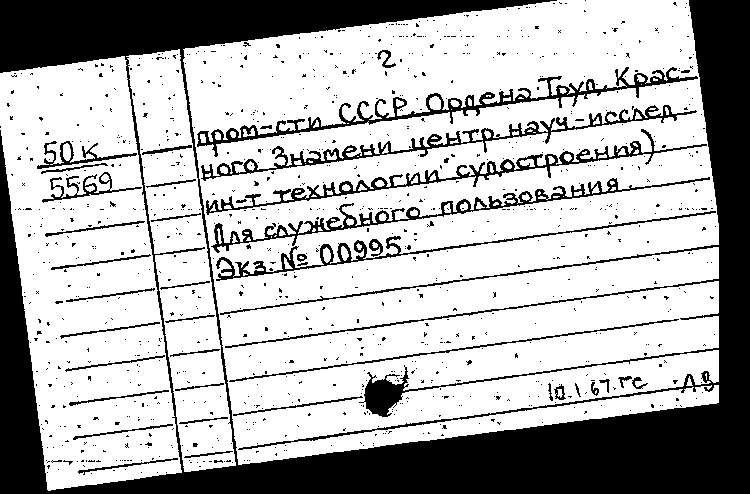 2.
50к
5569
пром-сти СССР. Ордена Труд. Крас-
ного Знамени центр. науч.-исслед.
ин-т технологии судостроения).
Для служебного пользования.
Экз. № 00995.
10.1.67.гс ЛВ